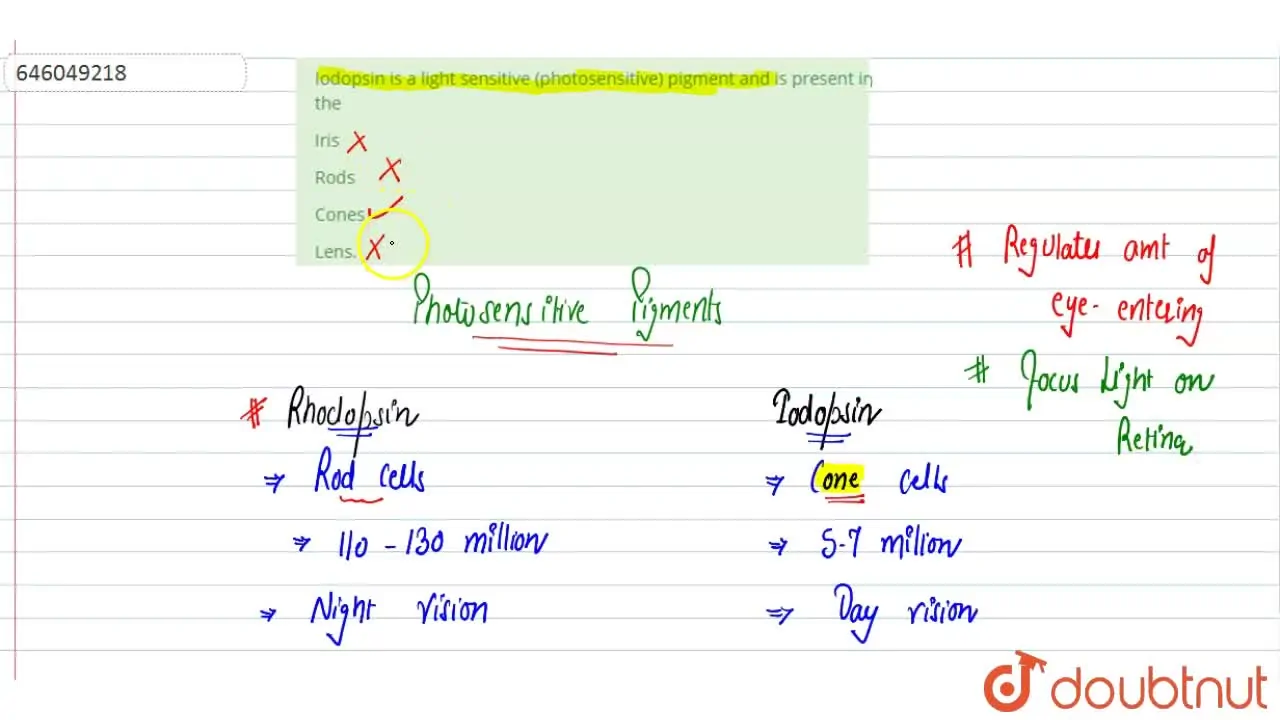 646049218
Iodopsin is a light sensitive (photosensitive) pigment and is present in
the
Iris X
Rods X
Cones ✓
Lens. X
Photosensitive Pigments
# Regulates amt of
eye- entering
# Focus light on
Retina
# Rhodopsin
⇒ Rod cells
⇒ 110 - 130 million
⇒ Night vision
Iodopsin
⇒ Cone cells
⇒ 5-7 milion
⇒ Day vision
doubtnut